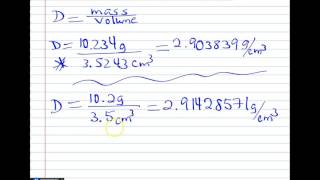 D = mass/volume
D = 10.234g/3.5243cm³ = 2.9038399g/cm³
*
D = 10.2g/3.5cm³ = 2.91428571g/cm³